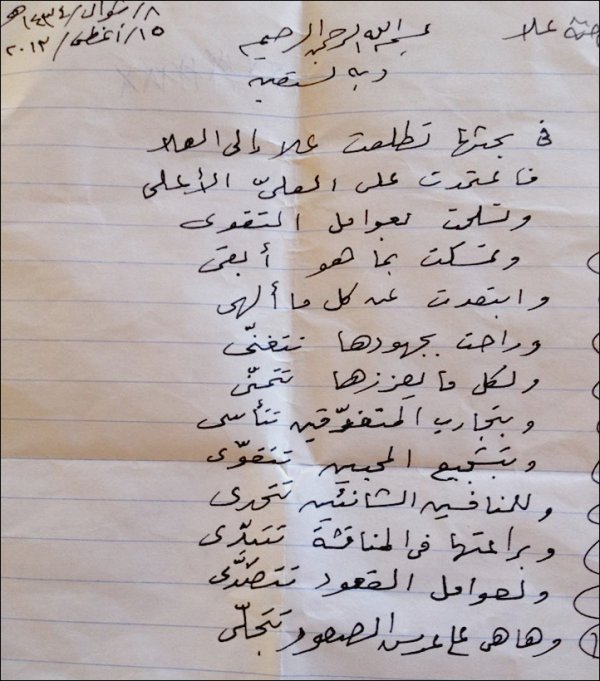 ٨/شوال/١٤٣٤هـ
١٥/أغسطس/٢٠١٣
علا
بسم الله الرحمن الرحيم
وبه نستعين
في بحثها تطلعت علا إلى العلا
فاعتمدت على العليّ الأعلى
وتسلحت بعوامل التقوى
وتمسكت بما هو أبقى
وابتعدت عن كل ما ألهى
وراحت بجهودها تتغنّى
ولكل ما يعززها تتمنّى
وبتجارب المتفوّقين تتأسى
وبتشجيع المحبين تتقوّى
وللمنافسين الشانئين تتحدى
وبراعتها في المناقشة تتبدّى
ولعوامل القعود تتصدّى
وها هي على عرس الصعود تتجلّى